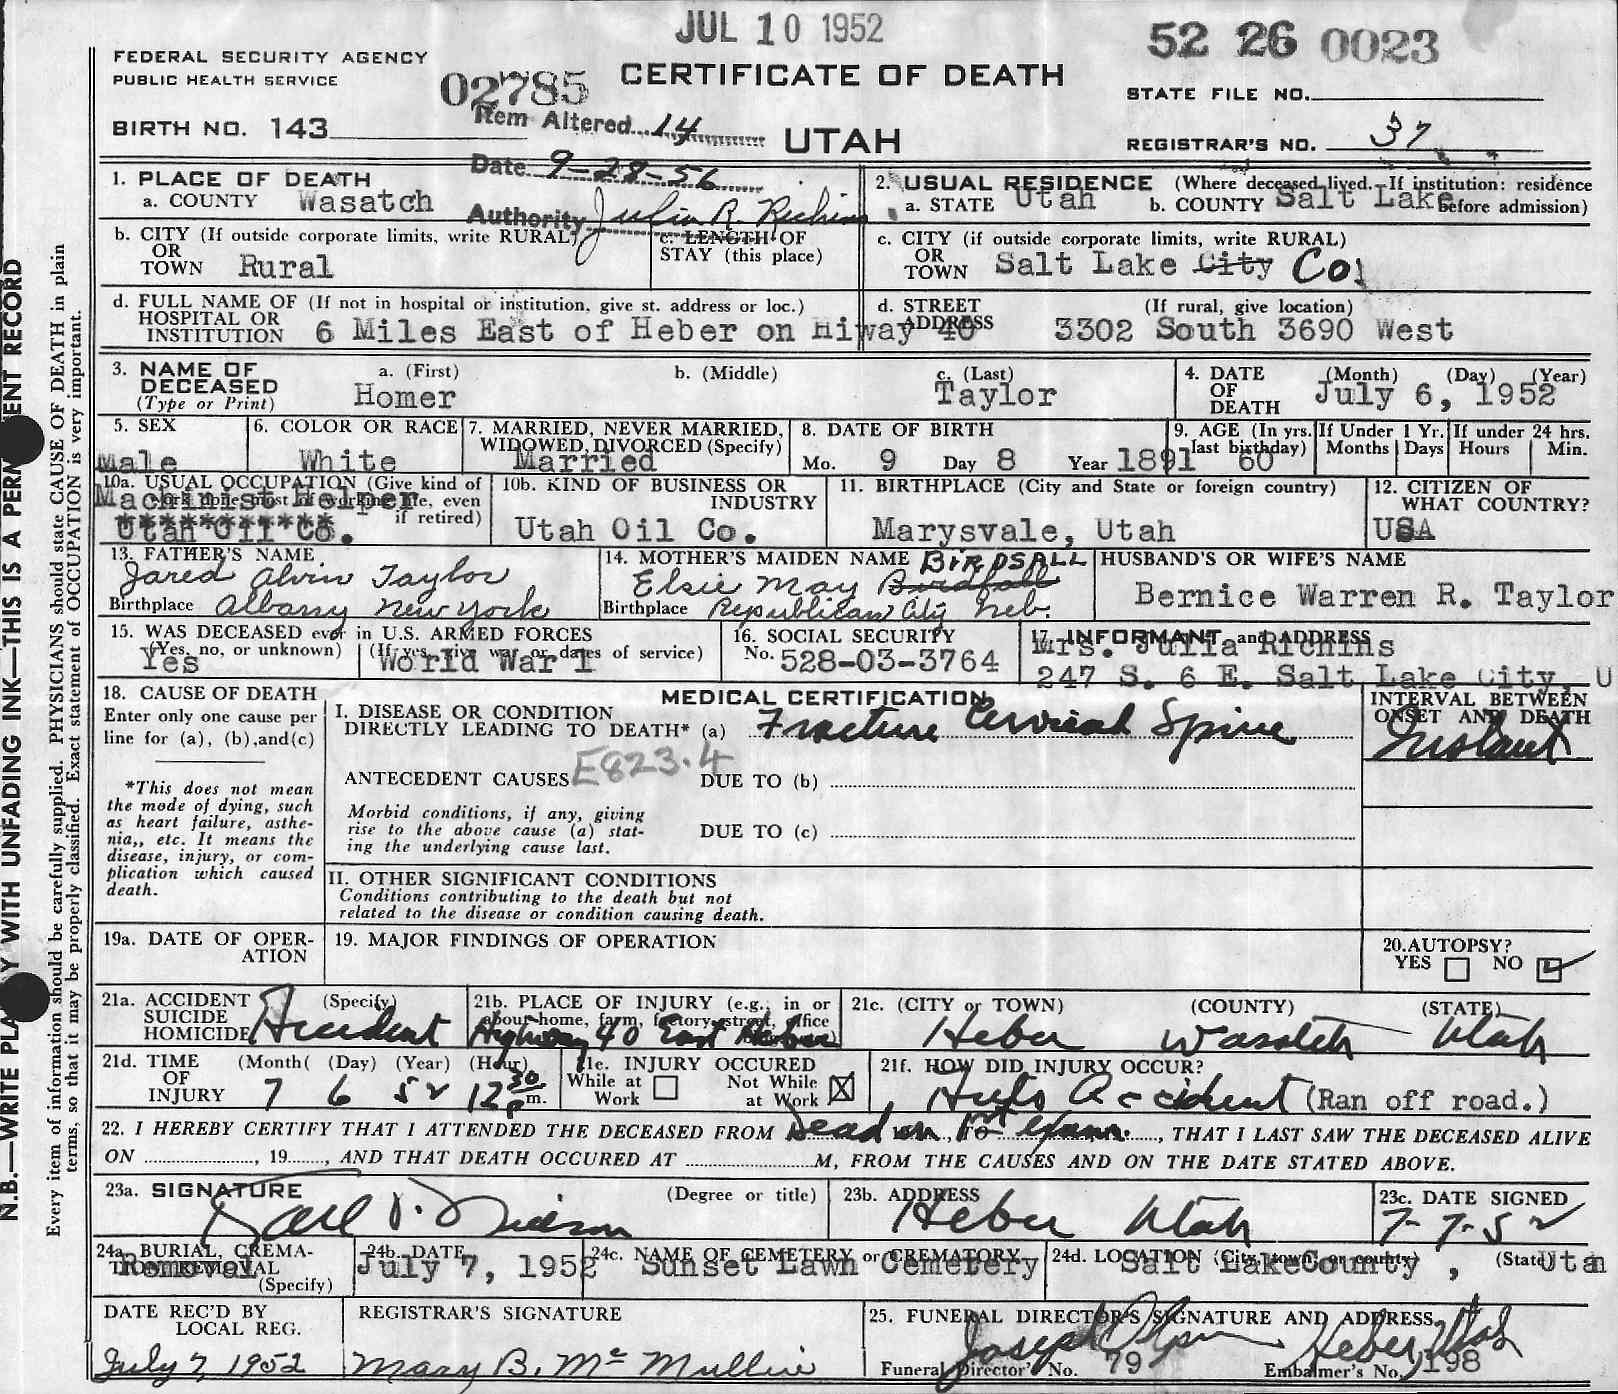 JUL 10 1952
52 26 0023
FEDERAL SECURITY AGENCY
PUBLIC HEALTH SERVICE
02785
CERTIFICATE OF DEATH
STATE FILE NO.
Item Altered 14
BIRTH NO. 143
UTAH
REGISTRAR'S NO. 37
Date 9-28-56
Authority Julia R. Richins
1. PLACE OF DEATH
a. COUNTY Wasatch
2. USUAL RESIDENCE (Where deceased lived. If institution: residence before admission)
a. STATE Utah b. COUNTY Salt Lake
b. CITY (If outside corporate limits, write RURAL)
OR TOWN Rural
c. LENGTH OF STAY (this place)
c. CITY (if outside corporate limits, write RURAL)
OR TOWN Salt Lake City Co.
d. FULL NAME OF (If not in hospital or institution, give st. address or loc.)
HOSPITAL OR INSTITUTION 6 Miles East of Heber on Hiway 40
d. STREET ADDRESS (If rural, give location)
3302 South 3690 West
3. NAME OF DECEASED (Type or Print)
a. (First) b. (Middle) c. (Last)
Homer Taylor
4. DATE OF DEATH (Month) (Day) (Year)
July 6, 1952
5. SEX
Male
6. COLOR OR RACE
White
7. MARRIED, NEVER MARRIED, WIDOWED, DIVORCED (Specify)
Married
8. DATE OF BIRTH
Mo. 9 Day 8 Year 1891
9. AGE (In yrs. last birthday) 60
If Under 1 Yr. Months Days
If under 24 hrs. Hours Min.
10a. USUAL OCCUPATION (Give kind of work done most of working life, even if retired)
Machinist Helper
************
Utah Oil Co.
10b. KIND OF BUSINESS OR INDUSTRY
Utah Oil Co.
11. BIRTHPLACE (City and State or foreign country)
Marysvale, Utah
12. CITIZEN OF WHAT COUNTRY?
USA
13. FATHER'S NAME
Jared Alvin Taylor
Birthplace Albany New York
14. MOTHER'S MAIDEN NAME BIRDSALL
Elsie May Birdsall
Birthplace Republican City Neb.
HUSBAND'S OR WIFE'S NAME
Bernice Warren R. Taylor
15. WAS DECEASED ever in U.S. ARMED FORCES
(Yes, no, or unknown) (If yes, give war or dates of service)
Yes World War I
16. SOCIAL SECURITY
No. 528-03-3764
17. INFORMANT and ADDRESS
Mrs. Julia Richins
247 S. 6 E. Salt Lake City, U
18. CAUSE OF DEATH
Enter only one cause per line for (a), (b), and (c)
*This does not mean the mode of dying, such as heart failure, asthenia,, etc. It means the disease, injury, or complication which caused death.
MEDICAL CERTIFICATION
I. DISEASE OR CONDITION
DIRECTLY LEADING TO DEATH* (a) Fracture Cervical Spine
INTERVAL BETWEEN ONSET AND DEATH
Instant
ANTECEDENT CAUSES E823.4 DUE TO (b)
Morbid conditions, if any, giving rise to the above cause (a) stating the underlying cause last.
DUE TO (c)
II. OTHER SIGNIFICANT CONDITIONS
Conditions contributing to the death but not related to the disease or condition causing death.
19a. DATE OF OPERATION
19. MAJOR FINDINGS OF OPERATION
20. AUTOPSY?
YES NO
21a. ACCIDENT SUICIDE HOMICIDE (Specify)
Accident
21b. PLACE OF INJURY (e.g., in or about home, farm, factory, street, office
Highway 40 East Heber
21c. (CITY or TOWN) (COUNTY) (STATE)
Heber Wasatch Utah
21d. TIME OF INJURY (Month) (Day) (Year) (Hour)
7 6 52 12 30 P m.
21e. INJURY OCCURED
While at Work Not While at Work
21f. HOW DID INJURY OCCUR?
Auto Accident (Ran off road.)
22. I HEREBY CERTIFY THAT I ATTENDED THE DECEASED FROM Dead on 1st exam., TO, THAT I LAST SAW THE DECEASED ALIVE
ON, 19, AND THAT DEATH OCCURED AT M, FROM THE CAUSES AND ON THE DATE STATED ABOVE.
23a. SIGNATURE (Degree or title)
23b. ADDRESS
Heber Utah
23c. DATE SIGNED
7-7-52
24a. BURIAL, CREMATION, REMOVAL (Specify)
Removal
24b. DATE
July 7, 1952
24c. NAME OF CEMETERY or CREMATORY
Sunset Lawn Cemetery
24d. LOCATION (City, town, or county) (State)
Salt LakeCounty, Utah
DATE REC'D BY LOCAL REG.
July 7, 1952
REGISTRAR'S SIGNATURE
Mary B. McMullin
25. FUNERAL DIRECTOR'S SIGNATURE AND ADDRESS
Joseph Olpin Heber, Utah
Funeral Director's No. 79 Embalmer's No. 198
N.B.—WRITE PLAINLY WITH UNFADING INK—THIS IS A PERMANENT RECORD
Every item of information should be carefully supplied. PHYSICIANS should state CAUSE OF DEATH in plain
terms, so that it may be properly classified. Exact statement of OCCUPATION is very important.